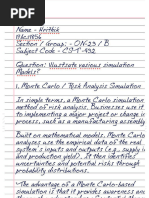 Name - Hrittik
Section / Group: - ON-23 / B
Subject Code - CST-432
Question: Illustrate various simulation
Models?
1. Monte Carlo / Risk Analysis Simulation
In simple terms, a Monte Carlo simulation
method of risk analysis. Businesses use it to
implementing a major project or change in a
process, such as a manufacturing assembly
Built on mathematical models, Monte Carlo
analyses use the empirical data of the real
system's inputs and outputs (e.g., supply
and production yield). It then identifies
uncertainties and potential risks through
probability distributions.
-The advantage of a Monte Carlo-based
simulation is that it provides awareness and